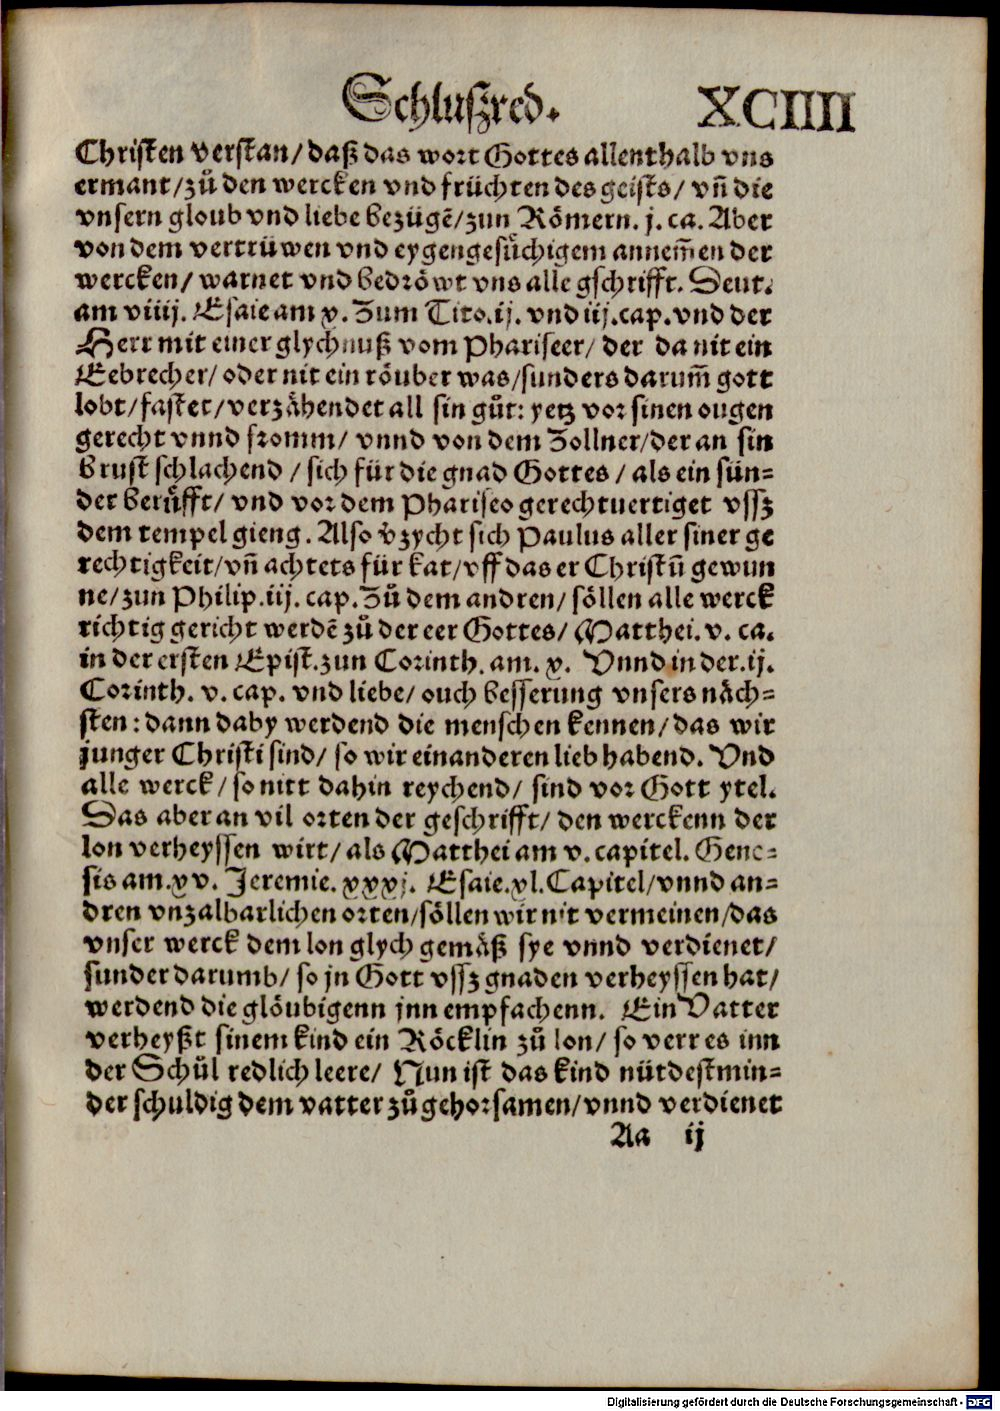 Schluſzred. XCIIII
Chriſten verſtan/ daß das wort Gottes allenthalb vns
ermant/ zuͦ den wercken vnd früchten des geiſts/ vñ die
vnſern gloub vnd liebe bezügẽ/ zun Römern. j. ca. Aber
von dem vertrüwen vnd eygengeſuͤchigem annem̃en der
wercken/ warnet vnd bedroͤwt vns alle gſchrifft. Deut.
am viiij. Eſaie am x. Zum Tito.ij. vnd iij.cap.vnd der
Herr mit einer glychnuß vom Phariſeer/ der da nit ein
Eebrecher/ oder nit ein roͤuber was/ ſunders darum̃ gott
lobt/ faſtet/ verzaͤhendet all ſin guͦt: yetz vor ſinen ougen
gerecht vnnd fromm/ vnnd von dem Zollner/ der an ſin
bruſt ſchlachend / ſich für die gnad Gottes / als ein ſün-
der beruͤfft/ vnd vor dem Phariſeo gerechtuertiget vſſz
dem tempel gieng. Alſo v̈zycht ſich Paulus aller ſiner ge
rechtigkeit/ vñ achtets für kat/ vff das er Chriſtũ gewun
ne/ zun Philip.iij. cap. Zuͦ dem andren/ ſoͤllen alle werck
richtig gericht werdẽ zuͦ der eer Gottes/ Matthei. v. ca.
in der erſten Epiſt.zun Corinth. am. x. Vnnd in der.ij.
Corinth. v. cap. vnd liebe/ ouch beſſerung vnſers naͤch-
ſten : dann daby werdend die menſchen kennen/ das wir
junger Chriſti ſind/ ſo wir einanderen lieb habend. Vnd
alle werck/ ſo nitt dahin reychend/ ſind vor Gott ytel.
Das aber an vil orten der geſchrifft/ den werckenn der
lon verheyſſen wirt/ als Matthei am v. capitel. Gene-
ſis am.xv. Jeremie. xxxj. Eſaie.xl.Capitel/ vnnd an-
dren vnzalbarlichen orten/ ſoͤllen wir nit vermeinen/ das
vnſer werck dem lon glych gemaͤß ſye vnnd verdienet/
ſunder darumb/ ſo jn Gott vſſz gnaden verheyſſen hat/
werdend die gloͤubigenn jnn empfachenn. Ein Vatter
verheyßt ſinem kind ein Roͤcklin zuͦ lon/ ſo verr es inn
der Schuͦl redlich leere/ Nun iſt das kind nütdeſtmin-
der ſchuldig dem vatter zuͦ gehorſamen/ vnnd verdienet
Aa ij
Digitalisierung gefördert durch die Deutsche Forschungsgemeinschaft - DFG